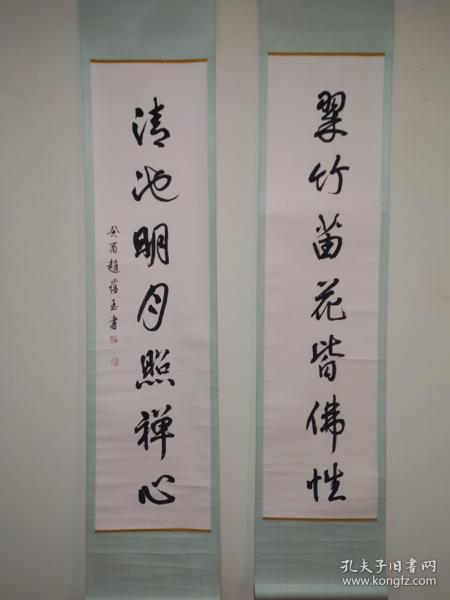 翠竹黄花皆佛性
清池明月照禅心
癸酉赵蕴玉书
孔夫子旧书网
www.kongfz.com